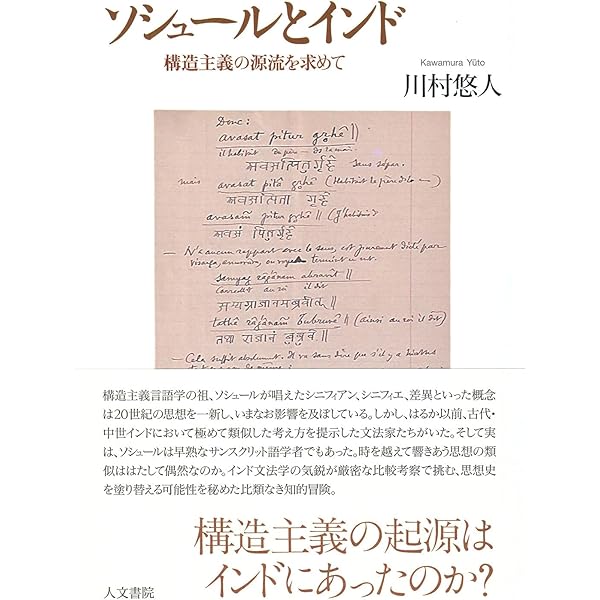 ソシュールとインド
構造主義の源流を求めて
Kawamura Yūto
川村悠人
Donc:
avasat pitur gṛhê ||
il habitait du père - de la mai.
अवसत्पितुर्गृहे sans sépar.
mais avasat pitâ gṛhê (Habitait le père d. la —)
अवसत्पिता गृहे
avasaṁ pitur gṛhê || (J'habitais)
अवसं पितुर्गृहे
— N'a aucun rapport avec le sens, est purement dicté par
samyag râgânam abravît ||
correctt au roi il dit
सम्यग्राजानमब्रवीत् ||
tathâ râgânaṁ bubruvê || (ainsi au roi il dit)
तथा राजानं बुब्रुवे ||
— Cela suffit absolument. Il va sans dire que s'il y a
構造主義言語学の祖、ソシュールが唱えたシニフィアン、シニフィエ、差異といった概念
は20世紀の思想を一新し、いまなお影響を及ぼしている。しかし、はるか以前、古代・
中世インドにおいて極めて類似した考え方を提示した文法家たちがいた。そして実
は、ソシュールは早熟なサンスクリット語学者でもあった。時を越えて響きあう思想の類
似ははたして偶然なのか。インド文法学の気鋭が厳密な比較考察で挑む、思想史
を塗り替える可能性を秘めた比類なき知的冒険。
構造主義の起源は
インドにあったのか?
人文書院